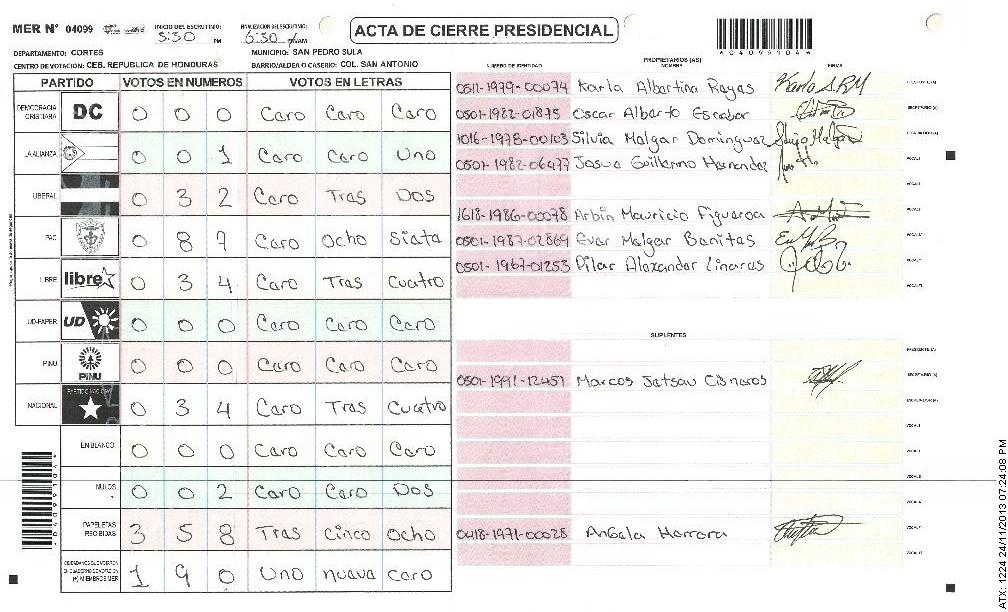 MER N° 04099
INICIO DEL ESCRUTINIO:
5:30 PM
FINALIZACION DEL ESCRUTINIO:
6:30 PM
ACTA DE CIERRE PRESIDENCIAL
*04099104*
DEPARTAMENTO: CORTES
MUNICIPIO: SAN PEDRO SULA
CENTRO DE VOTACION: CEB. REPUBLICA DE HONDURAS
BARRIO/ALDEA O CASERIO: COL. SAN ANTONIO
PARTIDO VOTOS EN NUMEROS VOTOS EN LETRAS
DEMOCRACIA CRISTIANA DC 0 0 0 Caro Caro Caro
LA ALIANZA 0 0 1 Caro Caro Uno
LIBERAL 0 3 2 Caro Tras Dos
PAC 0 8 7 Caro Ocho Siata
LIBRE libre 0 3 4 Caro Tras Cuatro
UD-FAPER UD 0 0 0 Caro Caro Caro
PINU PINU 0 0 0 Caro Caro Caro
NACIONAL PARTIDO NACIONAL 0 3 4 Caro Tras Cuatro
EN BLANCO 0 0 0 Caro Caro Caro
NULOS 0 0 2 Caro Caro Dos
PAPELETAS RECIBIDAS 3 5 8 Tras Cinco Ocho
CIUDADANOS QUE VOTARON EN CUADERNO DE VOTACION (+) MIEMBROS MER 1 9 0 Uno nuava Caro
PROPIETARIOS (AS)
NUMERO DE IDENTIDAD NOMBRE FIRMA
0511-1979-00074 Karla Albartina Rayas Karla S.R.M
0501-1982-01875 Oscar Alberto Escobar
1016-1978-00103 Silvia Malgar Dominguaz
0501-1982-06477 Josua Guillarmo Hernandaz
1618-1986-00078 Arbin Mauricio Figuaroa
0501-1987-02869 Evar Malgar Banitas
0501-1967-01253 Pilar Alaxandar Linaras
SUPLENTES
0501-1991-12457 Marcos Jatsau Cisnaros
0418-1971-00028 Angala Harrara
ATX: 1224 24/11/2013 07:24:08 PM